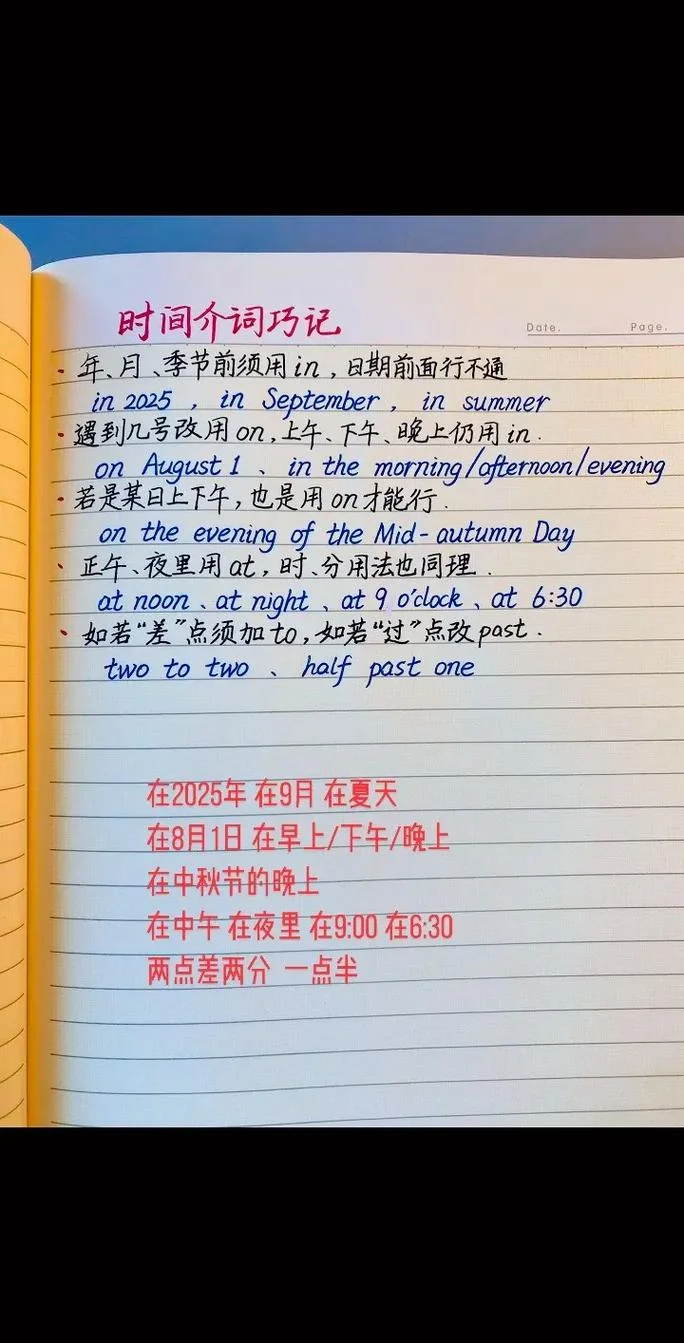 时间介词巧记
Date. Page.
· 年、月、季节前须用in，日期前面行不通
in 2025 , in September , in summer
· 遇到几号改用on,上午、下午、晚上仍用in.
on August 1 、in the morning/afternoon/evening
· 若是某日上下午,也是用on才能行.
on the evening of the Mid-autumn Day
· 正午、夜里用at,时、分用法也同理.
at noon、at night、at 9 o'clock、at 6:30
· 如若“差”点须加to,如若“过”点改past.
two to two 、half past one
在2025年 在9月 在夏天
在8月1日 在早上/下午/晚上
在中秋节的晚上
在中午 在夜里 在9:00 在6:30
两点差两分 一点半